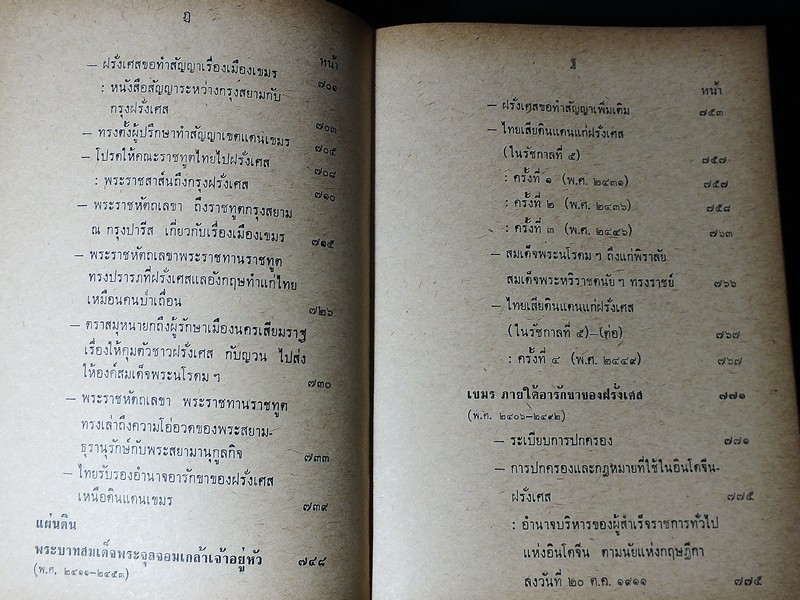 ฎ
หน้า
– ฝรั่งเศสขอทำสัญญาเรื่องเมืองเขมร ๗๐๑
: หนังสือสัญญาระหว่างกรุงสยามกับ
กรุงฝรั่งเศส ๗๐๓
– ทรงตั้งผู้ปรึกษาทำสัญญาเขตแดนเขมร ๗๐๕
– โปรดให้คณะราชทูตไทยไปฝรั่งเศส ๗๐๘
: พระราชสาส์นถึงกรุงฝรั่งเศส ๗๑๐
– พระราชหัตถเลขา ถึงราชทูตกรุงสยาม
ณ กรุงปารีส เกี่ยวกับเรื่องเมืองเขมร ๗๑๕
– พระราชหัตถเลขาพระราชทานราชทูต
ทรงปรารภที่ฝรั่งเศสแลอังกฤษทำแก่ไทย
เหมือนคนป่าเถื่อน ๗๒๖
– ตราสมุหนายกถึงผู้รักษาเมืองนครเสียมราฐ
เรื่องให้คุมตัวชาวฝรั่งเศส กับญวน ไปส่ง
ให้องค์สมเด็จพระนโรดม ฯ ๗๓๐
– พระราชหัตถเลขา พระราชทานราชทูต
ทรงเล่าถึงความโอ่อวดของพระสยาม-
ธุรานุรักษ์กับพระสยามานุกูลกิจ ๗๓๓
– ไทยรับรองอำนาจอารักขาของฝรั่งเศส
เหนือดินแดนเขมร ๗๓๙
แผ่นดิน
พระบาทสมเด็จพระจุลจอมเกล้าเจ้าอยู่หัว ๗๔๘
(พ.ศ. ๒๔๑๑–๒๔๕๓)
ฐ
หน้า
– ฝรั่งเศสขอทำสัญญาเพิ่มเติม ๗๕๓
– ไทยเสียดินแดนแก่ฝรั่งเศส
(ในรัชกาลที่ ๕) ๗๕๗
: ครั้งที่ ๑ (พ.ศ. ๒๔๓๑) ๗๕๗
: ครั้งที่ ๒ (พ.ศ. ๒๔๓๖) ๗๕๘
: ครั้งที่ ๓ (พ.ศ. ๒๔๔๖) ๗๖๓
– สมเด็จพระนโรดม ฯ ถึงแก่พิราลัย
สมเด็จพระหริราชดนัย ฯ ทรงราชย์ ๗๖๖
– ไทยเสียดินแดนแก่ฝรั่งเศส
(ในรัชกาลที่ ๕)–(ต่อ) ๗๖๗
: ครั้งที่ ๔ (พ.ศ. ๒๔๔๙) ๗๖๗
เขมร ภายใต้อารักขาของฝรั่งเศส ๗๗๑
(พ.ศ. ๒๔๐๖–๒๔๙๒)
– ระเบียบการปกครอง ๗๗๑
– การปกครองและกฎหมายที่ใช้ในอินโดจีน-
ฝรั่งเศส ๗๗๕
: อำนาจบริหารของผู้สำเร็จราชการทั่วไป
แห่งอินโดจีน ตามนัยแห่งกฤษฎีกา
ลงวันที่ ๒๐ ต.ค. ๑๙๑๑ ๗๗๕